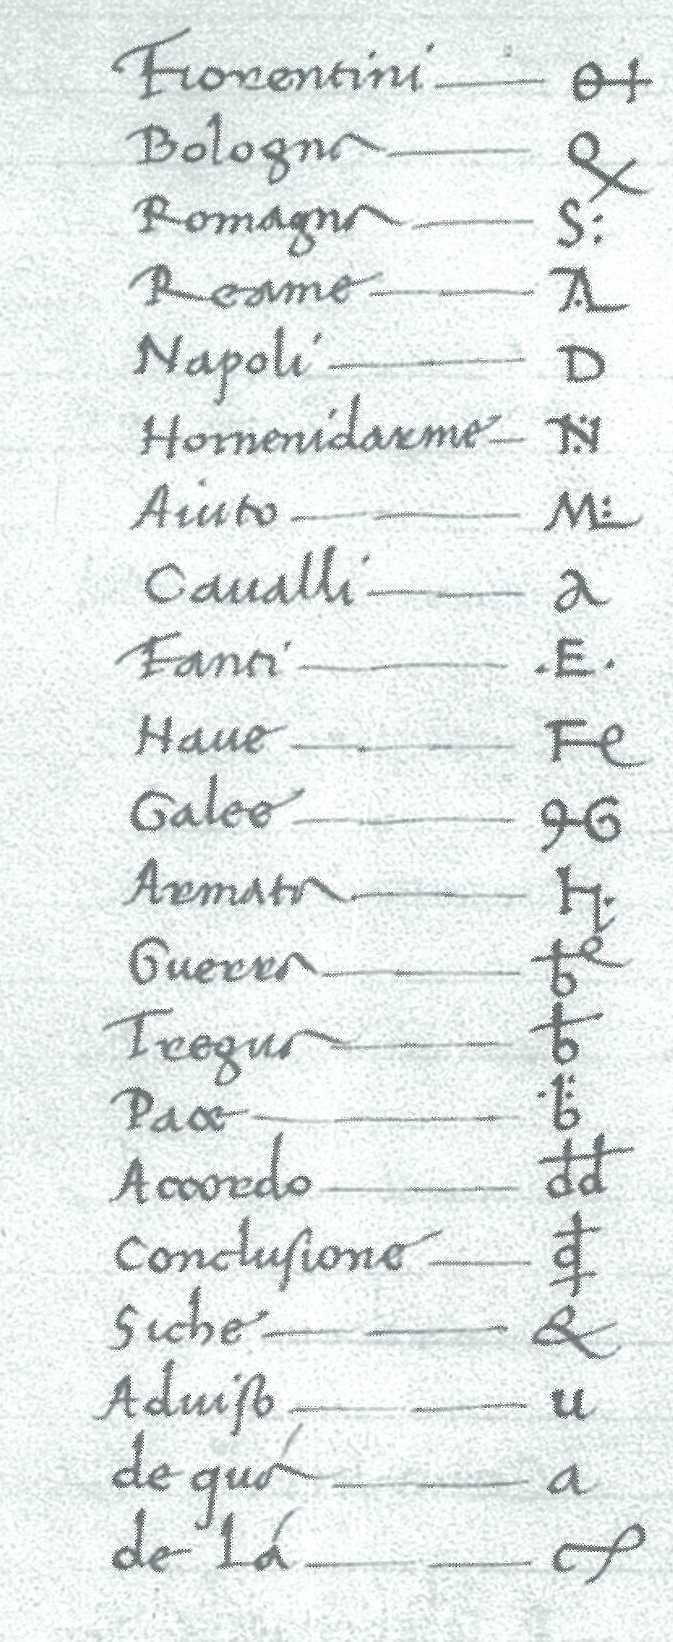 Fiorentini
Bologna
Romagna
Reame D
Napoli D
Homenidarme
Aiuto M:
Caualli a
Fanti .E.
Haue
Galee
Armata
Guerra
Tregua
Pace
Accordo
Conclusione
Siche
Aduiso u
de qua a
de Là